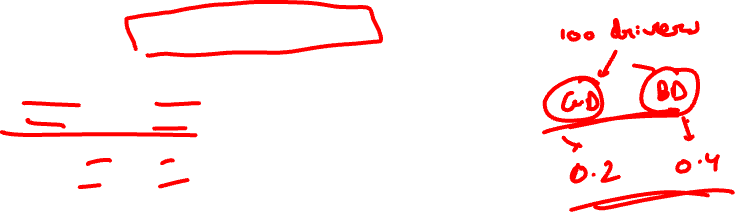 100 drivers
GD BD
0.2 0.4